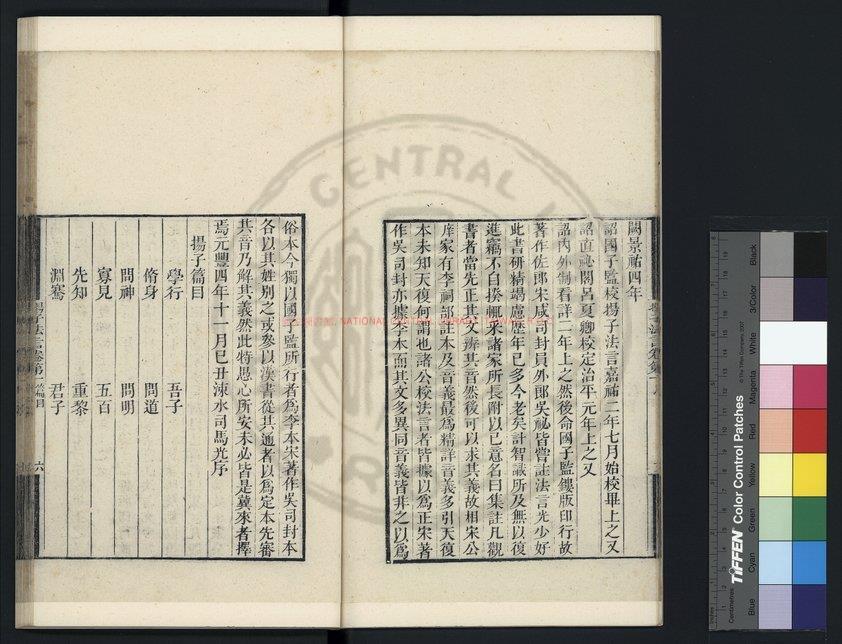 闕景祐四年
詔國子監校揚子法言嘉祐二年七月始校畢上之又
詔直祕閣呂夏卿校定治平元年上之又
詔內外制看詳二年上之然後命國子監鏤版印行故
著作佐郎宋咸司封員外郎吳祕皆嘗註法言光少好
此書研精竭慮歷年已多今老矣計智識所及無以復
進竊不自揆輒采諸家所長附以己意名曰集註凡觀
書者當先正其文辨其音然後可以求其義故相宋公
庠家有李祠部註本及音義最爲精詳音義多引天復
本未知天復何謂也諸公校法言者皆據以爲正宋著
作吳司封亦據李本而其文多異同音義皆非之以爲
俗本今獨以國子監所行者爲李本宋著作吳司封本
各以其姓別之或參以漢書從其通者以爲定本先審
其音乃解其義然此特愚心所安未必皆是冀來者擇
焉元豐四年十一月己丑涑水司馬光序
揚子篇目
學行 吾子
脩身 問道
問神 問明
寡見 五百
先知 重黎
淵騫 君子
揚子法言卷第一 篇目
六
CENTRAL
NATIONAL CENTRAL LIBRARY
TIFFEN Color Control Patches
© The Tiffen Company, 2007
Centimetres
Inches
Blue
Cyan
Green
Yellow
Red
Magenta
White
3/Color
Black